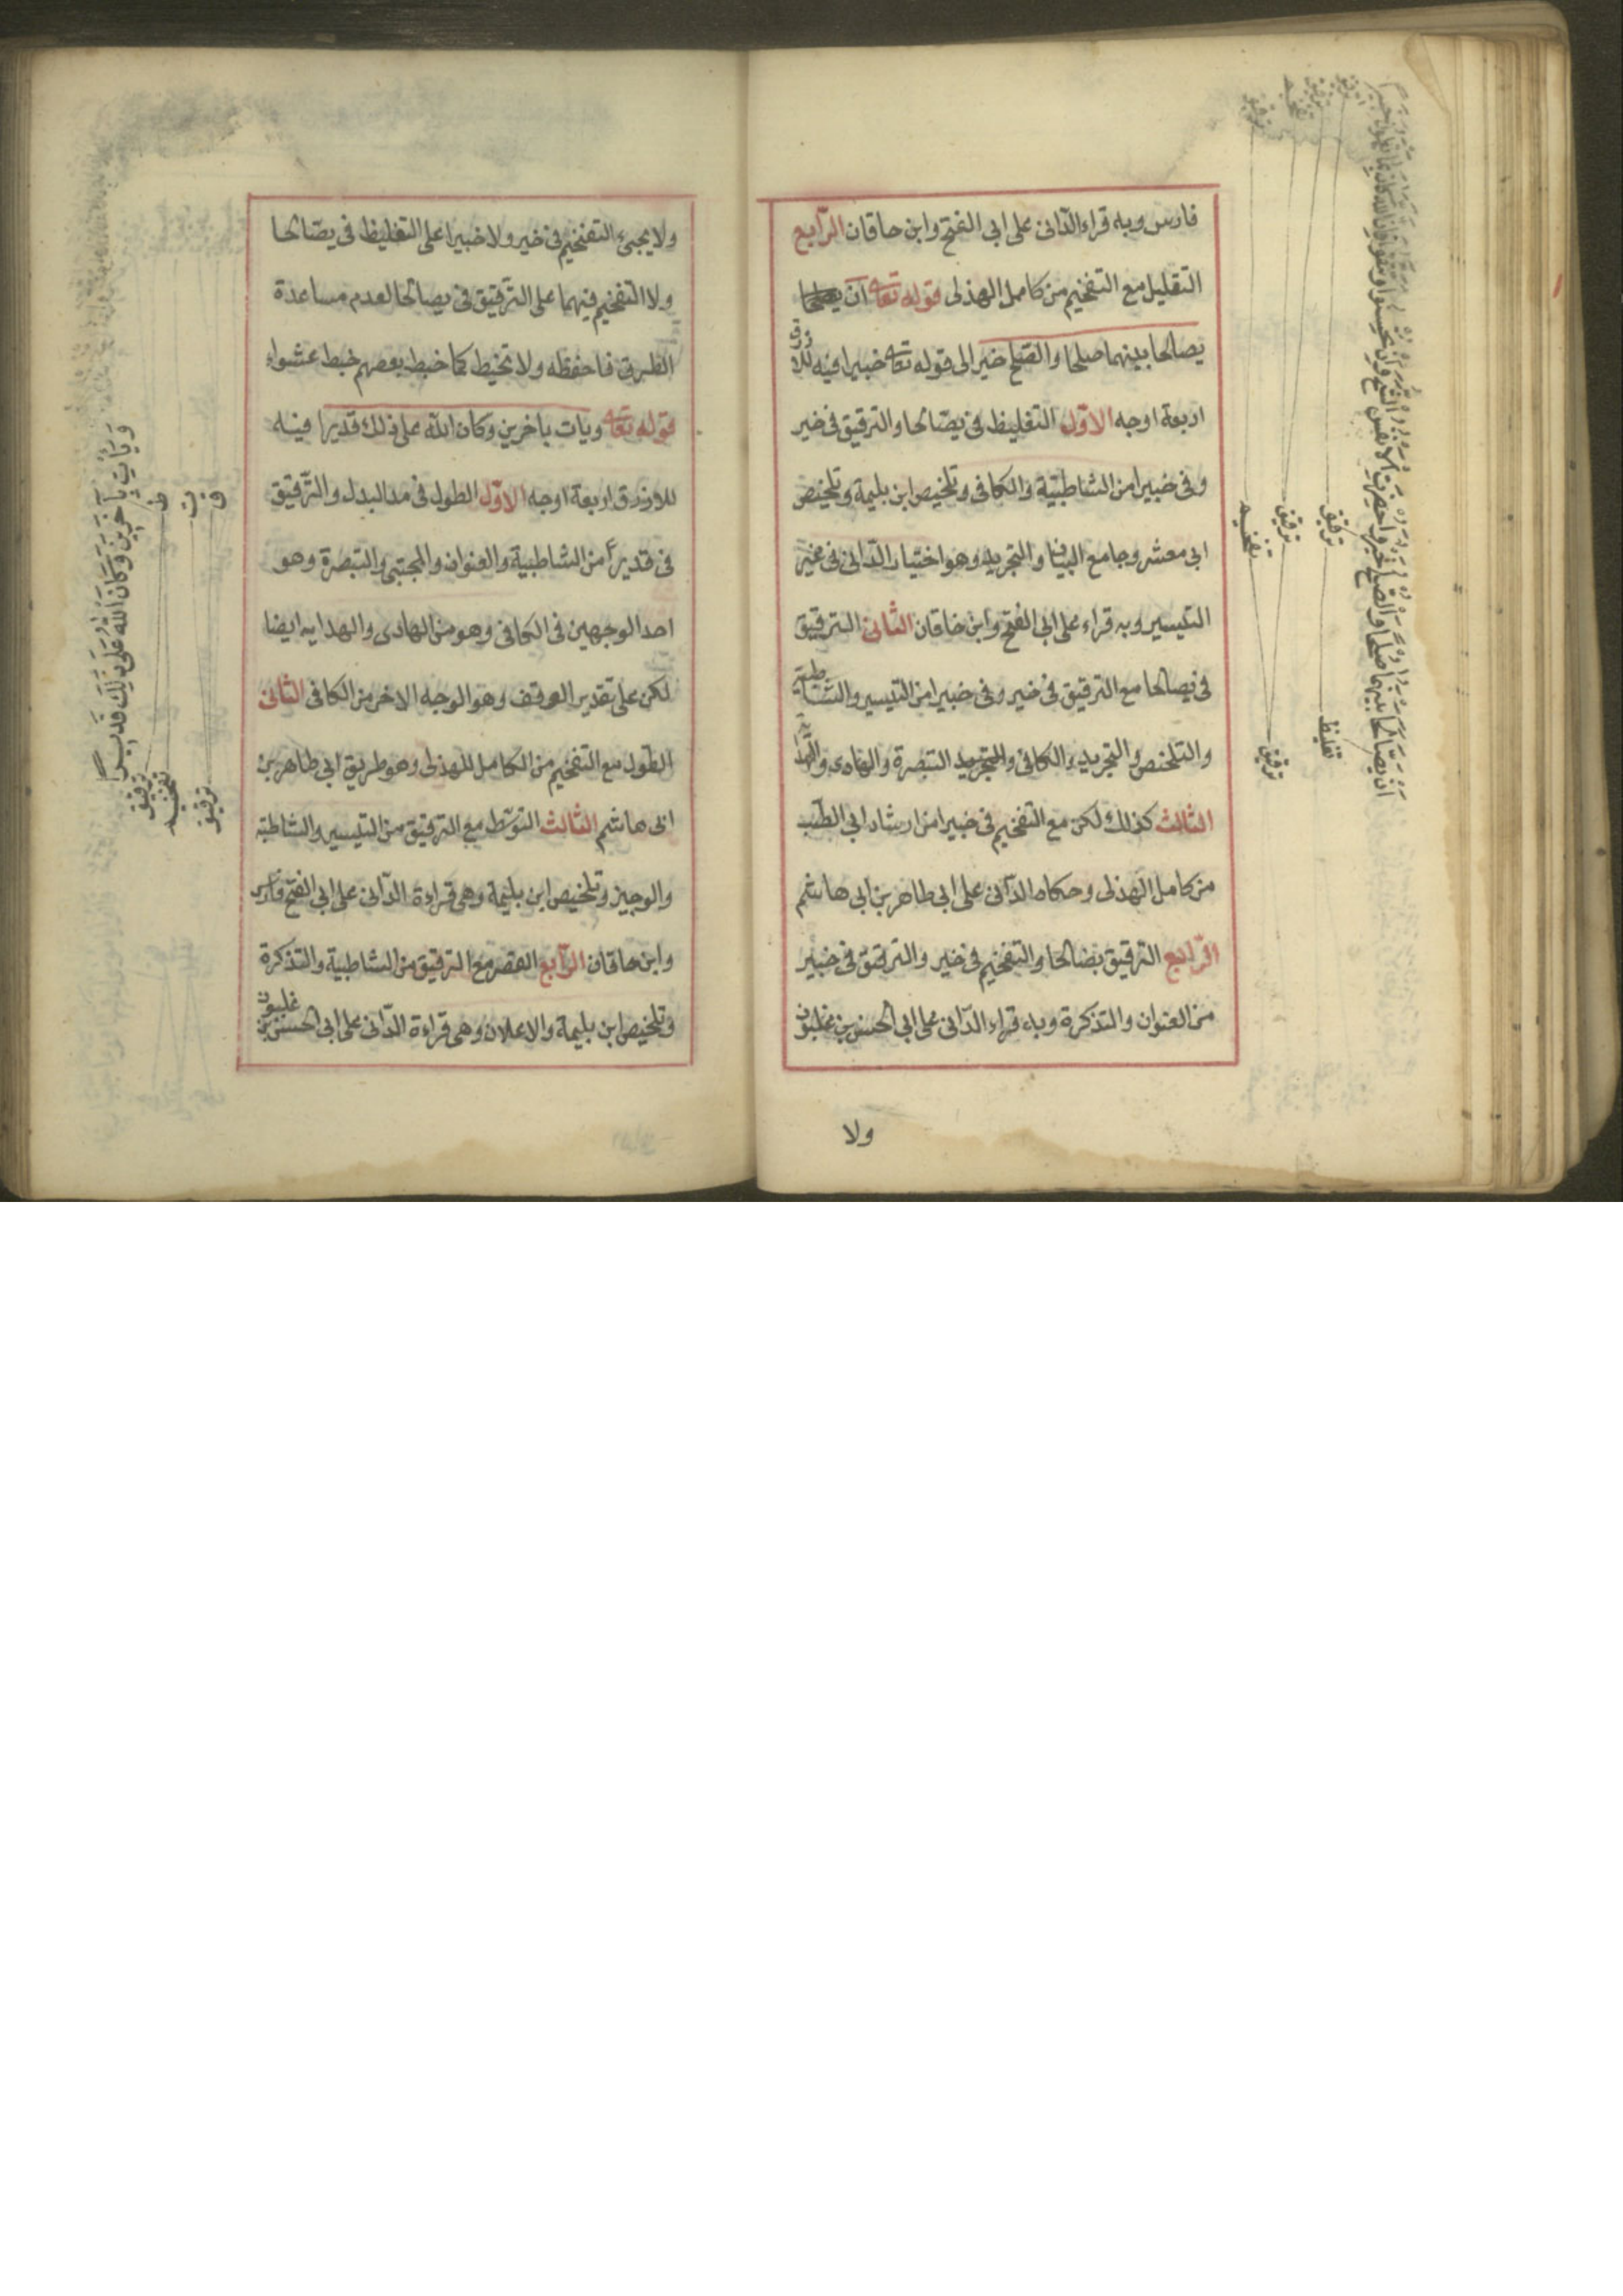 فارس وبه قراء الدّانى على ابى الفتح وابن حاقان الرّابع
التقليل مع التفخيم من كامل الهذلى قوله تعا ان
يصالحا بينهما صلحا والصّلح خير الى قوله تعا خبيرا فيه للازرق
اربعة اوجه الاوّل التغليظ فى يصّالحا والترقيق فى خير
وفى خبيرا من الشاطبيّة والكافى وتلخيص ابن بليمة وتلخيص
ابى معشر وجامع البيان والتجريد وهو اختيار الدّانى فى غير
التيسير وبه قراء على ابى الفتح وابن خاقان الثانى الترقيق
فى يصالحا مع الترقيق فى خير وفى خبيرا من التيسير والشاطبية
والتلخص والتجريد والكافى التبصرة والهادى
الثالث كذلك لكن مع التفخيم فى خبيرا من ارشاد ابى الطّب
من كامل الهذلى وحكاه الدّانى على ابى طاهر بن ابى هاشم
الرّابع الترقيق بصالحا والتفخيم فى خير والترقيق فى خبير
من العنوان والتذكرة وباء قراء الدّانى على ابى الحسن بن غلبون
ولا
ان يصالحا بينهما صلحا والصلح خير واحضرت الانفس الشح وان تحسنوا وتتقوا فان الله كان بما تعملون خبيرا
تغليظ
ترقيق
ترقيق
ترقيق
تفخيم
ولا يجىء التفخيم فى خير ولا خبيرا على التغليظ فى يصّالحا
ولا التفخيم فيهما على الترقيق فى يصالحا لعدم مساعدة
الطرق فاحفظه ولا تخيط كما خبط بعضهم خبط عشواء
قوله تعا ويات باخرين وكان الله على ذلك قديرا فيه
للازرق اربعة اوجه الاوّل الطول فى مد البدل والتّرقيق
فى قديرا من الشاطبية والعنوان والمجتبى والتبصرة وهو
احد الوجهين فى الكافى وهو من الهادى والهدايه ايضا
لكن على تقدير الوقف وهو الوجه الاخر من الكافى الثانى
الطّول مع التفخيم من الكامل للهذلى وهو طريق ابى طاهر بن
ابى هاشم الثالث التوسّط مع الترقيق من التيسير والشاطبيّة
والوجيز وتلخيص ابن بليمة وهى قراءة الدّانى على ابى الفتح فارس
وابن حاقان الرّابع القصر مع الترقيق من الشاطبية والتذكرة
وتلخيص ابن بليمة والاعلان وهى قراءة الدّانى على ابى الحسن بن غلبون
وَيَأْتِ بِآخَرِينَ وَكَانَ اللهُ عَلَى ذَلِكَ قَدِيرًا
ط
ت
ق
ترقيق
تفخيم
ترقيق